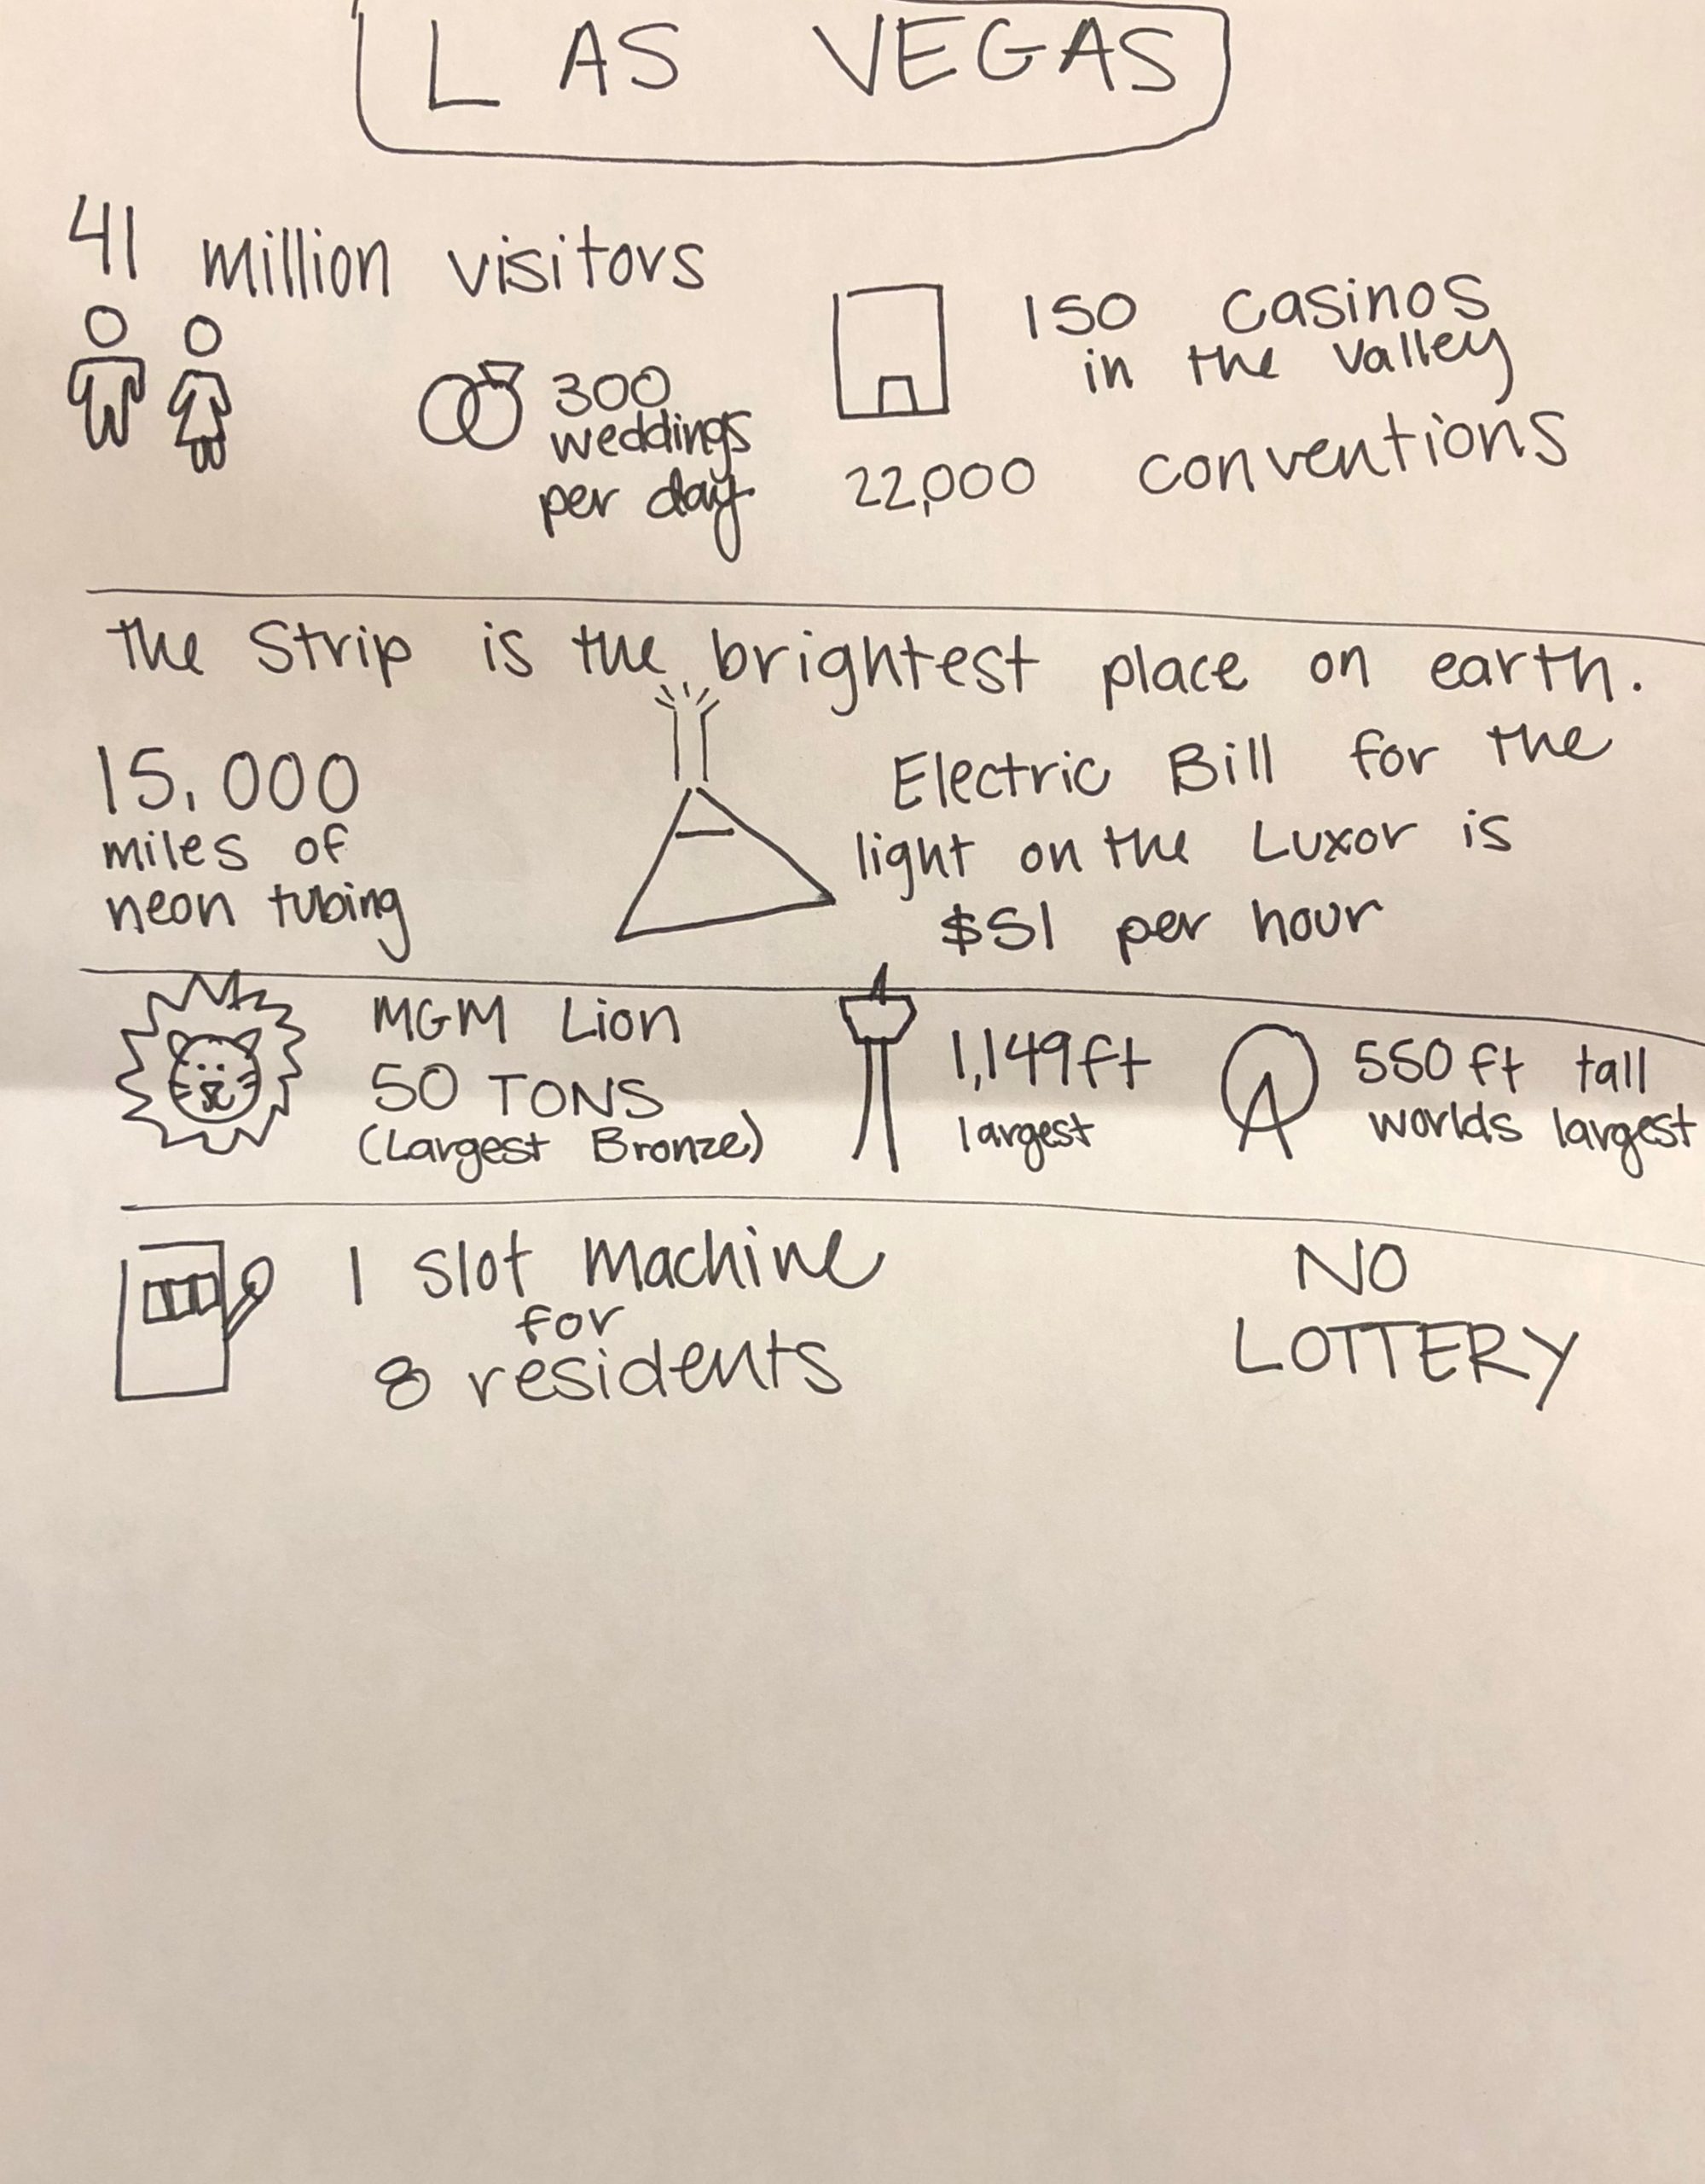 LAS VEGAS
41 million visitors
300
weddings
per day
150 casinos
in the valley
22,000 conventions
the Strip is the brightest place on earth.
15,000
miles of
neon tubing
Electric Bill for the
light on the Luxor is
$51 per hour
MGM Lion
50 TONS
(Largest Bronze)
1,149ft
largest
550 ft tall
worlds largest
1 slot machine
for
8 residents
NO
LOTTERY